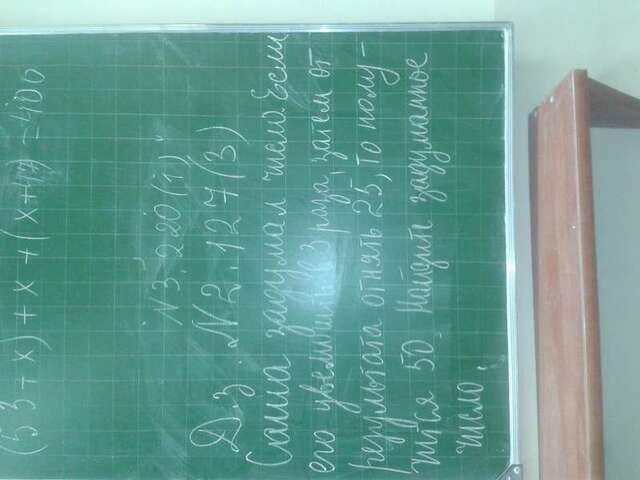 (53 - x) + x + (x+19) = 406
N 3.220 (1)
Д/з N 2.127 (В)
Саша задумал число. Если
его увеличить в 3 раза, затем от
результата отнять 25, то полу-
чится 50. Найдите задуманное
число.